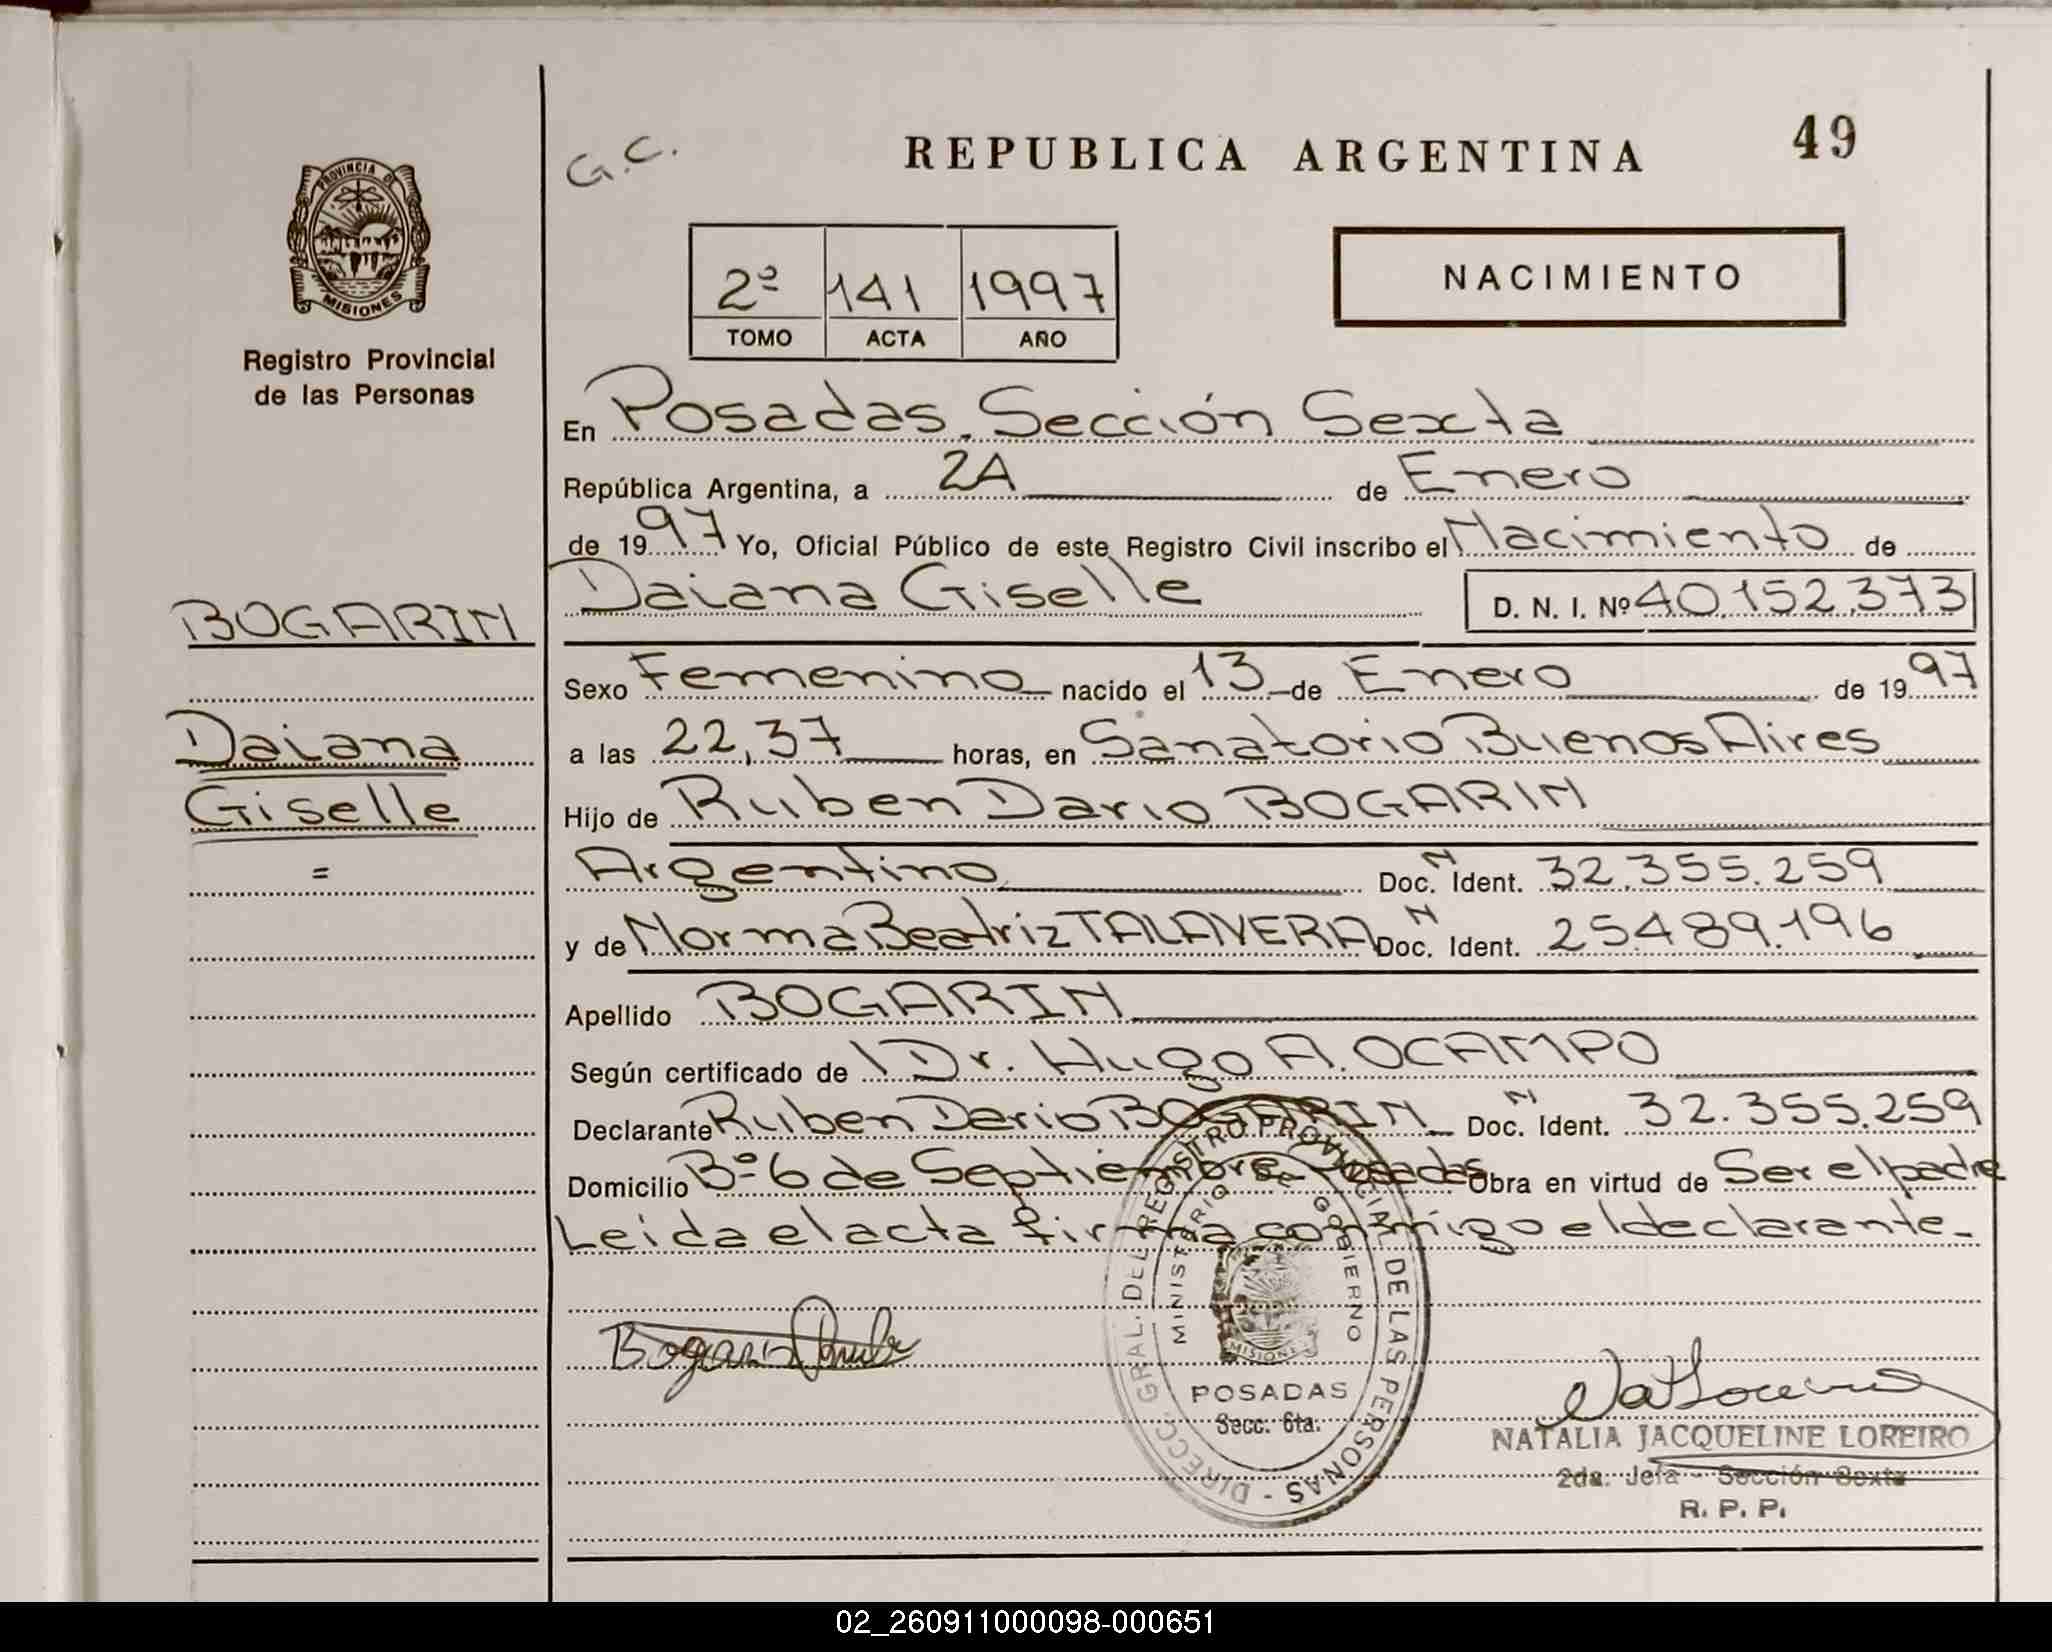 G.C.
REPUBLICA ARGENTINA
49
PROVINCIA DE
MISIONES
Registro Provincial
de las Personas
2º 141 1997
TOMO ACTA AÑO
NACIMIENTO
En Posadas, Sección Sexta
República Argentina, a 24 de Enero
de 1997 Yo, Oficial Público de este Registro Civil inscribo el Nacimiento de
Daiana Giselle D. N. I. Nº 40.152.373
BOGARIN
Sexo Femenino nacido el 13 de Enero de 1997
Daiana
a las 22,37 horas, en Sanatorio Buenos Aires
Giselle
Hijo de Ruben Dario BOGARIN
=
Argentino Doc. N Ident. 32.355.259
y de Norma Beatriz TALAVERA Doc. N Ident. 25489.196
Apellido BOGARIN
Según certificado de Dr. Hugo A. OCAMPO
Declarante Ruben Dario BOGARIN Doc. N Ident. 32.355.259
Domicilio Bº 6 de Septiembre Posadas Obra en virtud de Ser el padre
Leida el acta firma conmigo el declarante.
DIRECC. GRAL. DEL REGISTRO PROVINCIAL DE LAS PERSONAS -
MINISTERIO DE GOBIERNO
MISIONES
POSADAS
Secc. 6ta.
NATALIA JACQUELINE LOREIRO
2da. Jefa - Sección Sexta
R. P. P.
02_260911000098-000651